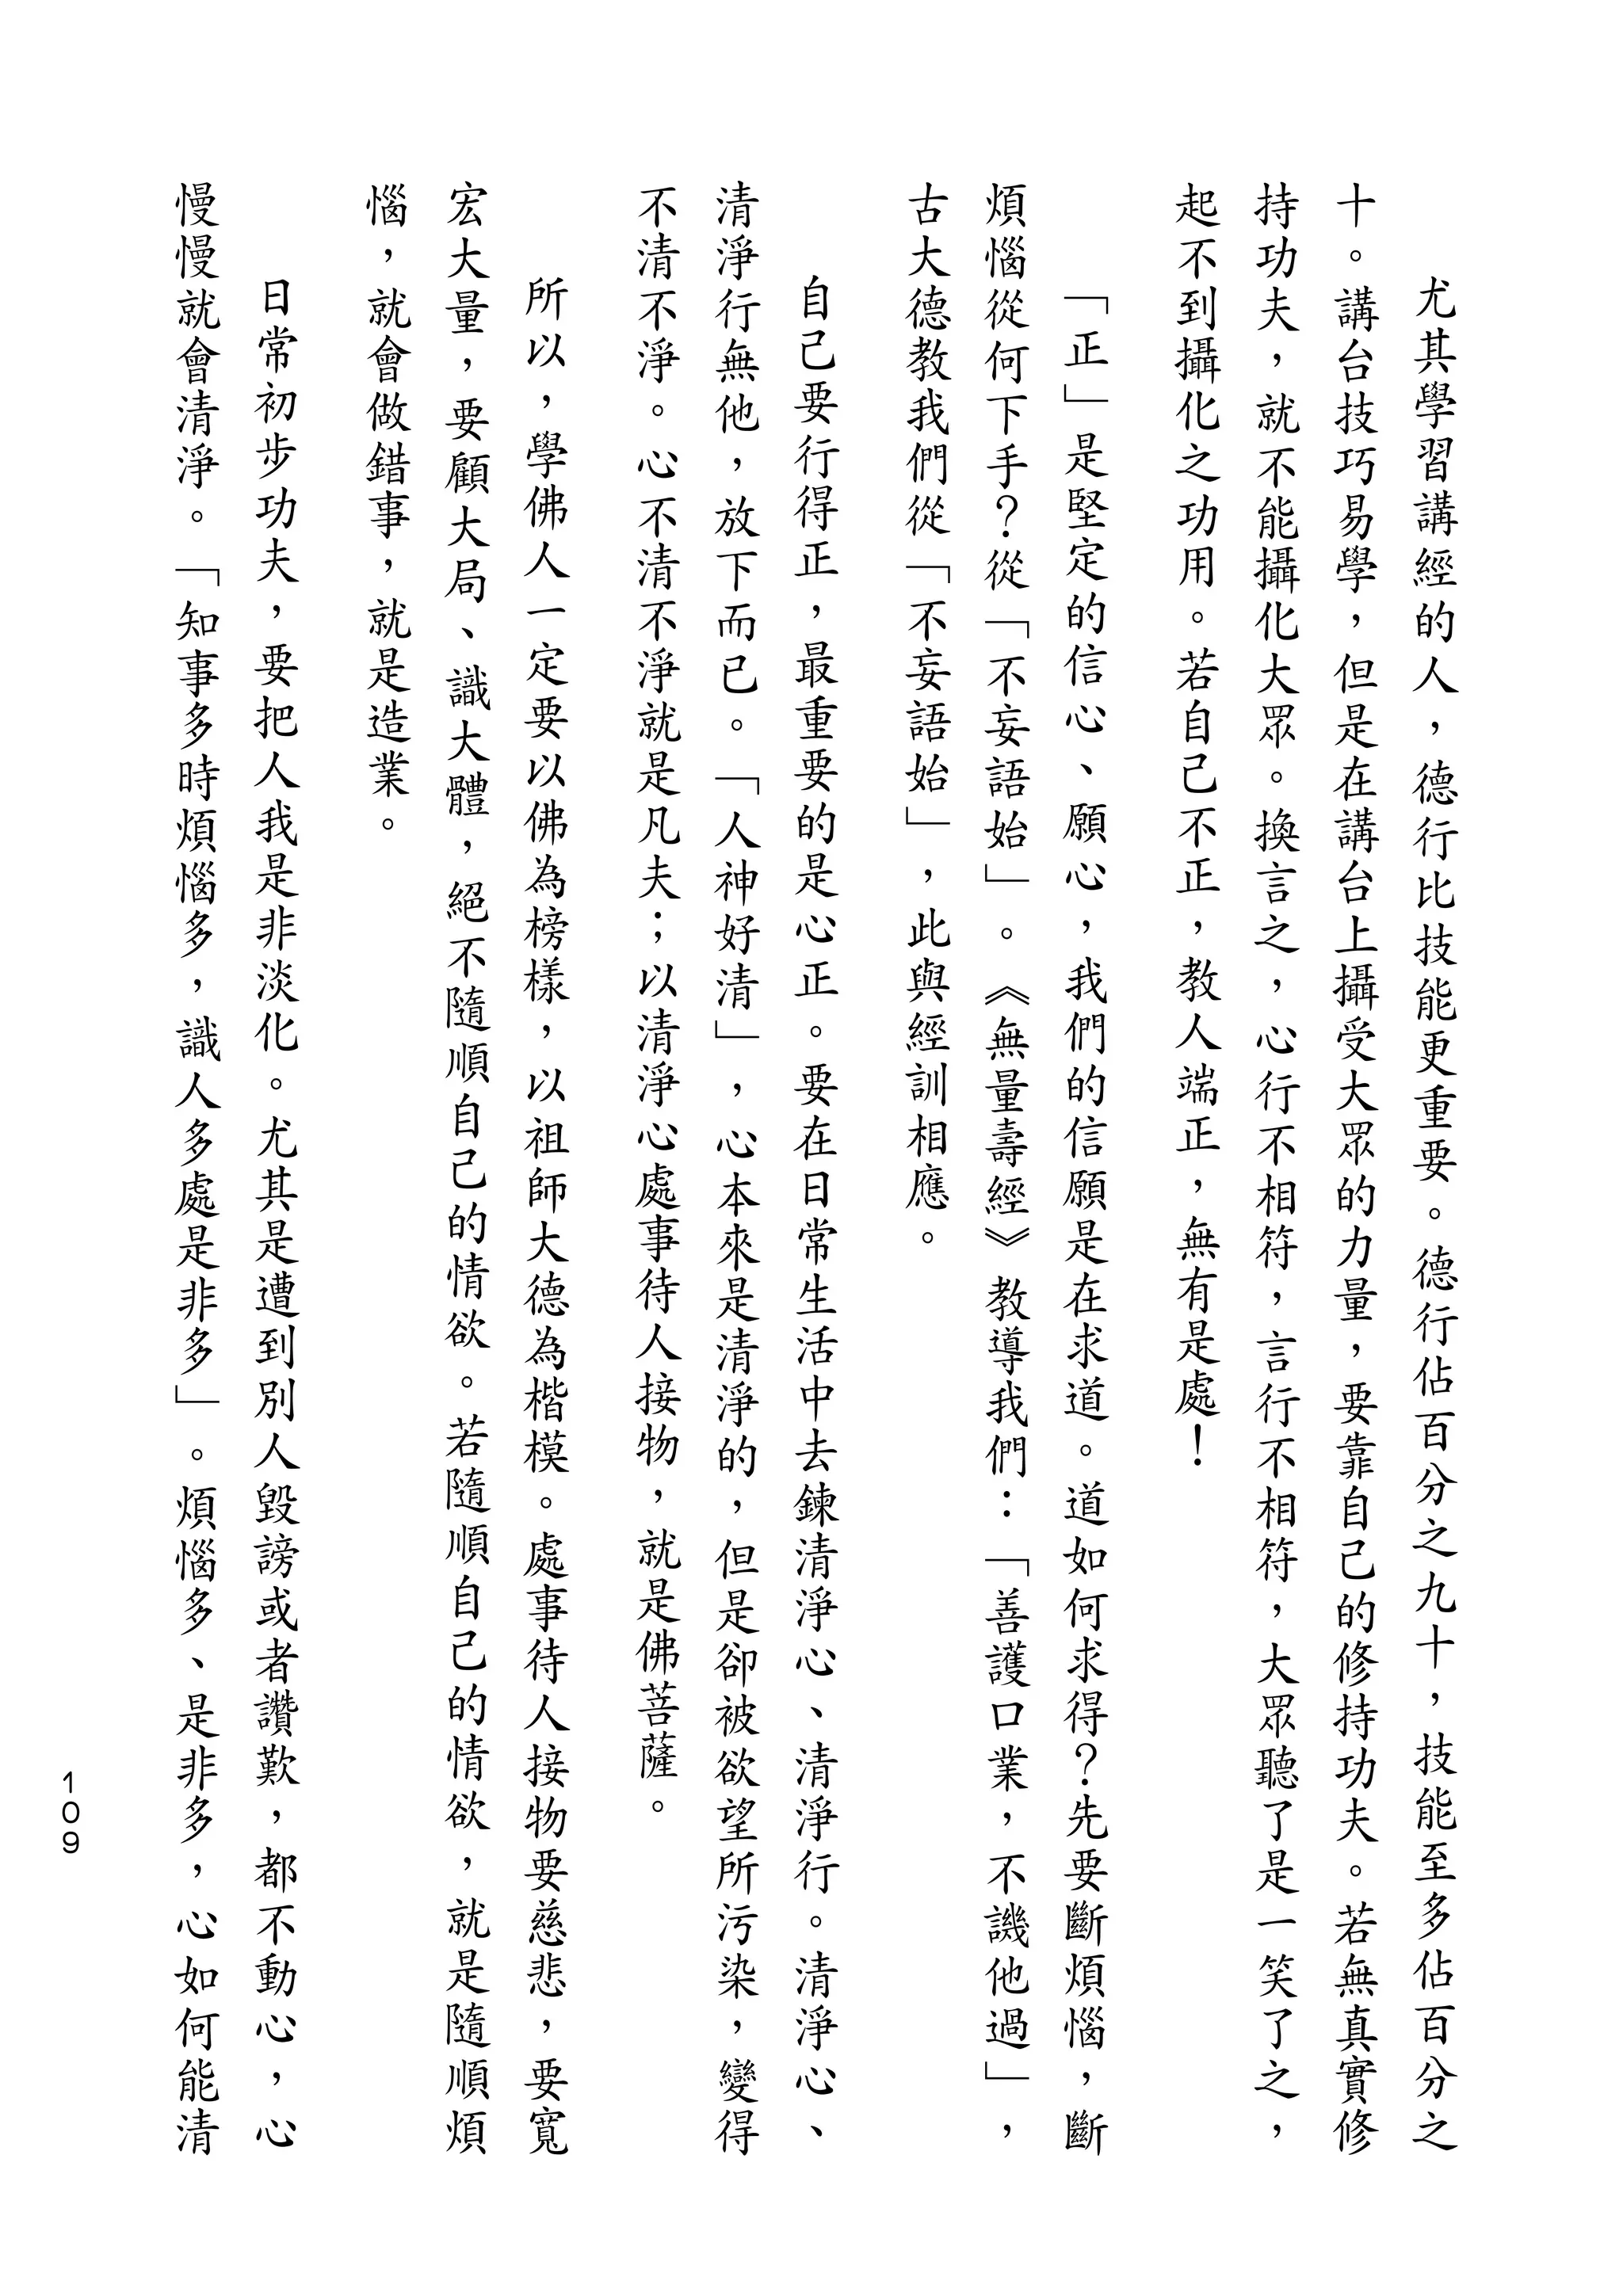 尤其學習講經的人，德行比技能更重要。德行佔百分之九十，技能至多佔百分之
十。講台技巧易學，但是在講台上攝受大眾的力量，要靠自己的修持功夫。若無真實修
持功夫，就不能攝化大眾。換言之，心行不相符，言行不相符，大眾聽了是一笑了之，
起不到攝化之功用。若自己不正，教人端正，無有是處！
「正」是堅定的信心、願心，我們的信願是在求道。道如何求得？先要斷煩惱，斷
煩惱從何下手？從「不妄語始」。《無量壽經》教導我們：「善護口業，不譏他過」，
古大德教我們從「不妄語始」，此與經訓相應。
自己要行得正，最重要的是心正。要在日常生活中去鍊清淨心、清淨行。清淨心、
清淨行無他，放下而已。「人神好清」，心本來是清淨的，但是卻被欲望所污染，變得
不清不淨。心不清不淨就是凡夫；以清淨心處事待人接物，就是佛菩薩。
所以，學佛人一定要以佛為榜樣，以祖師大德為楷模。處事待人接物要慈悲，要寬
宏大量，要顧大局、識大體，絕不隨順自己的情欲。若隨順自己的情欲，就是隨順煩
惱，就會做錯事，就是造業。
日常初步功夫，要把人我是非淡化。尤其是遭到別人毀謗或者讚歎，都不動心，心
慢慢就會清淨。「知事多時煩惱多，識人多處是非多」。煩惱多、是非多，心如何能清
109